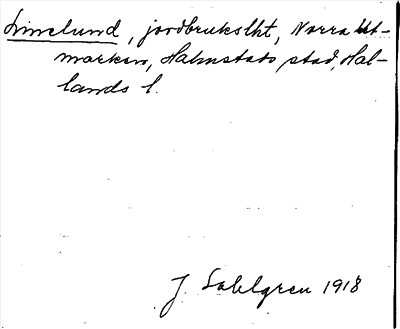 Linelund, jordbrukslht, Norra Ut-
marken, Halmstads stad, Hal-
lands l.
J. Sahlgren 1918